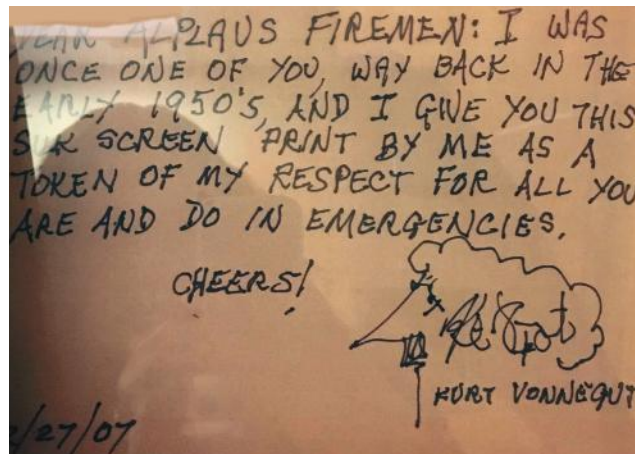 DEAR ALPLAUS FIREMEN: I WAS
ONCE ONE OF YOU, WAY BACK IN THE
EARLY 1950'S, AND I GIVE YOU THIS
SILK SCREEN PRINT BY ME AS A
TOKEN OF MY RESPECT FOR ALL YOU
ARE AND DO IN EMERGENCIES.
CHEERS!
KURT VONNEGUT
/27/07